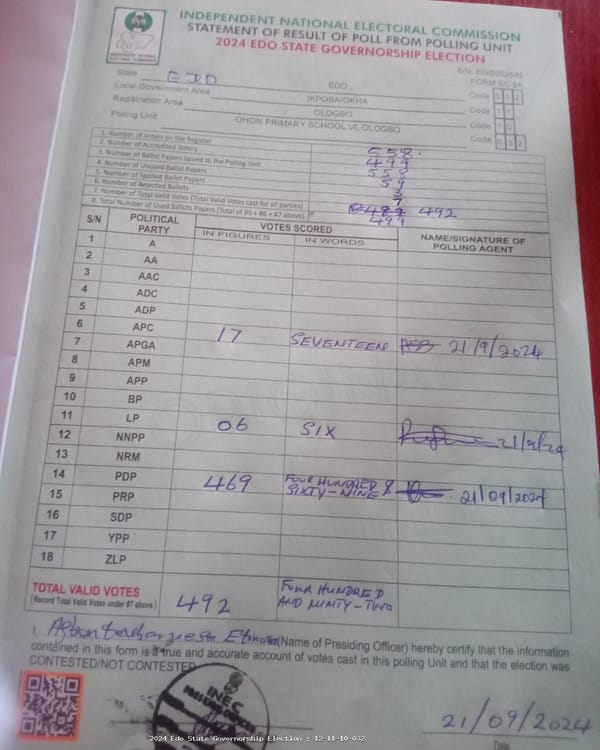 INDEPENDENT NATIONAL ELECTORAL COMMISSION
STATEMENT OF RESULT OF POLL FROM POLLING UNIT
2024 EDO STATE GOVERNORSHIP ELECTION
FORM EC 8A
State EDO EDO Code 0 1 2
Local Government Area IKPOBA/OKHA Code 1 1
Registration Area OLOGBO Code 1 0
Polling Unit OHON PRIMARY SCHOOL VI, OLOGBO Code 0 3 2
1. Number of Voters on the Register 558
2. Number of Accredited Voters 499
3. Number of Ballot Papers Issued to the Polling Unit 558
4. Number of Unused Ballot Papers 59
5. Number of Spoiled Ballot Papers
6. Number of Rejected Ballots 7
7. Number of Total Valid Votes (Total Valid Votes cast for all parties) 492
8. Total Number of Used Ballots Papers (Total of #5 + #6 + #7 above) 499
S/N POLITICAL PARTY VOTES SCORED NAME/SIGNATURE OF POLLING AGENT
IN FIGURES IN WORDS
1 A
2 AA
3 AAC
4 ADC
5 ADP
6 APC 17 SEVENTEEN 21/9/2024
7 APGA
8 APM
9 APP
10 BP
11 LP 06 SIX 21/9/24
12 NNPP
13 NRM
14 PDP 469 FOUR HUNDRED & SIXTY-NINE 21/09/2024
15 PRP
16 SDP
17 YPP
18 ZLP
TOTAL VALID VOTES 492 FOUR HUNDRED AND NINTY-TWO
(Record Total Valid Votes under #7 above)
I, (Name of Presiding Officer) hereby certify that the information
contained in this form is a true and accurate account of votes cast in this polling Unit and that the election was
CONTESTED/NOT CONTESTED
INEC
21/09/2024
Date
2024 Edo State Governorship Election : 12-11-10-032